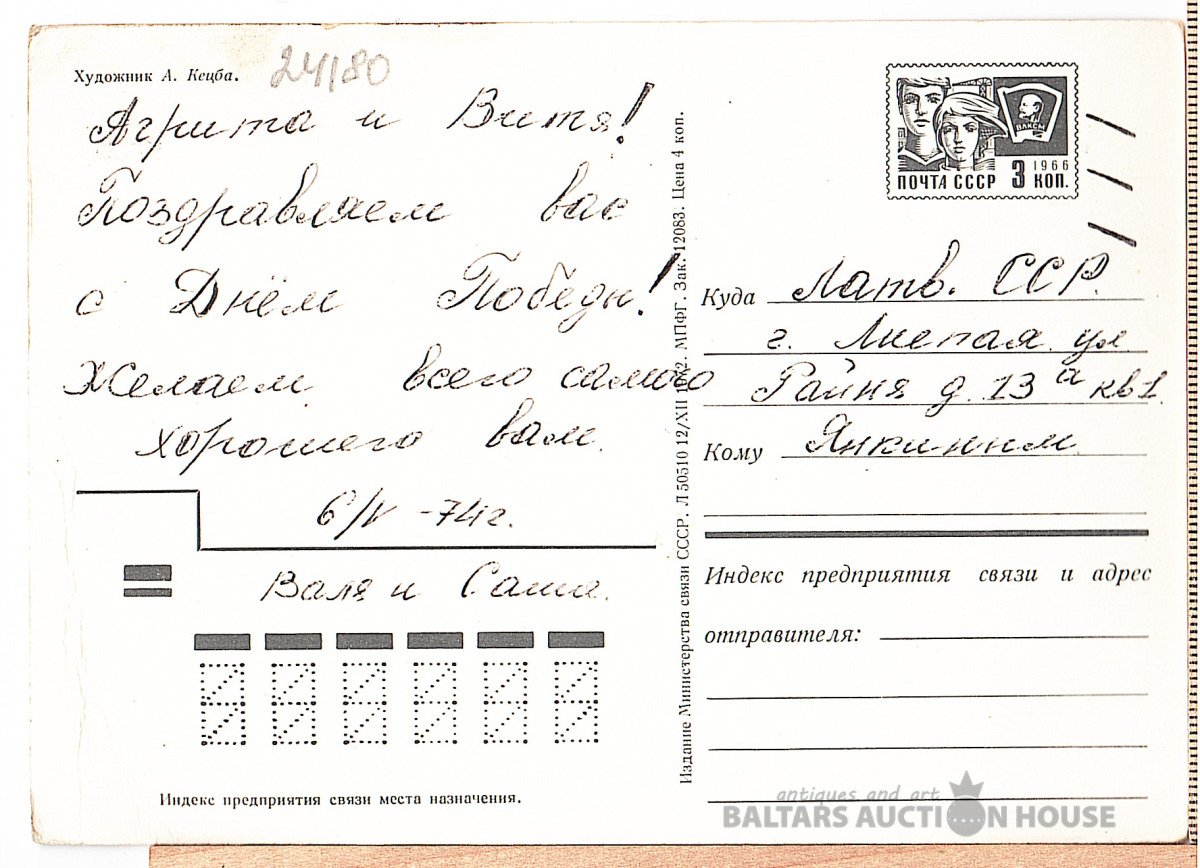 Художник А. Кецба.
24/80
Агрита и Витя!
Поздравляем вас
с Днём Победы!
Желаем всего самого
хорошего вам.
6/V -74г.
Валя и Саша.
Индекс предприятия связи места назначения.
Издание Министерства связи СССР. Л 50510 12/XII 1972. МПФГ. Зак. 12083. Цена 4 коп.
ВЛКСМ
1966
ПОЧТА СССР 3 КОП.
Куда Латв. ССР.
г. Лиепая ул
Райня д. 13 а кв 1.
Кому Янкиным.
Индекс предприятия связи и адрес
отправителя:
antiques and art
BALTARS AUCTION HOUSE